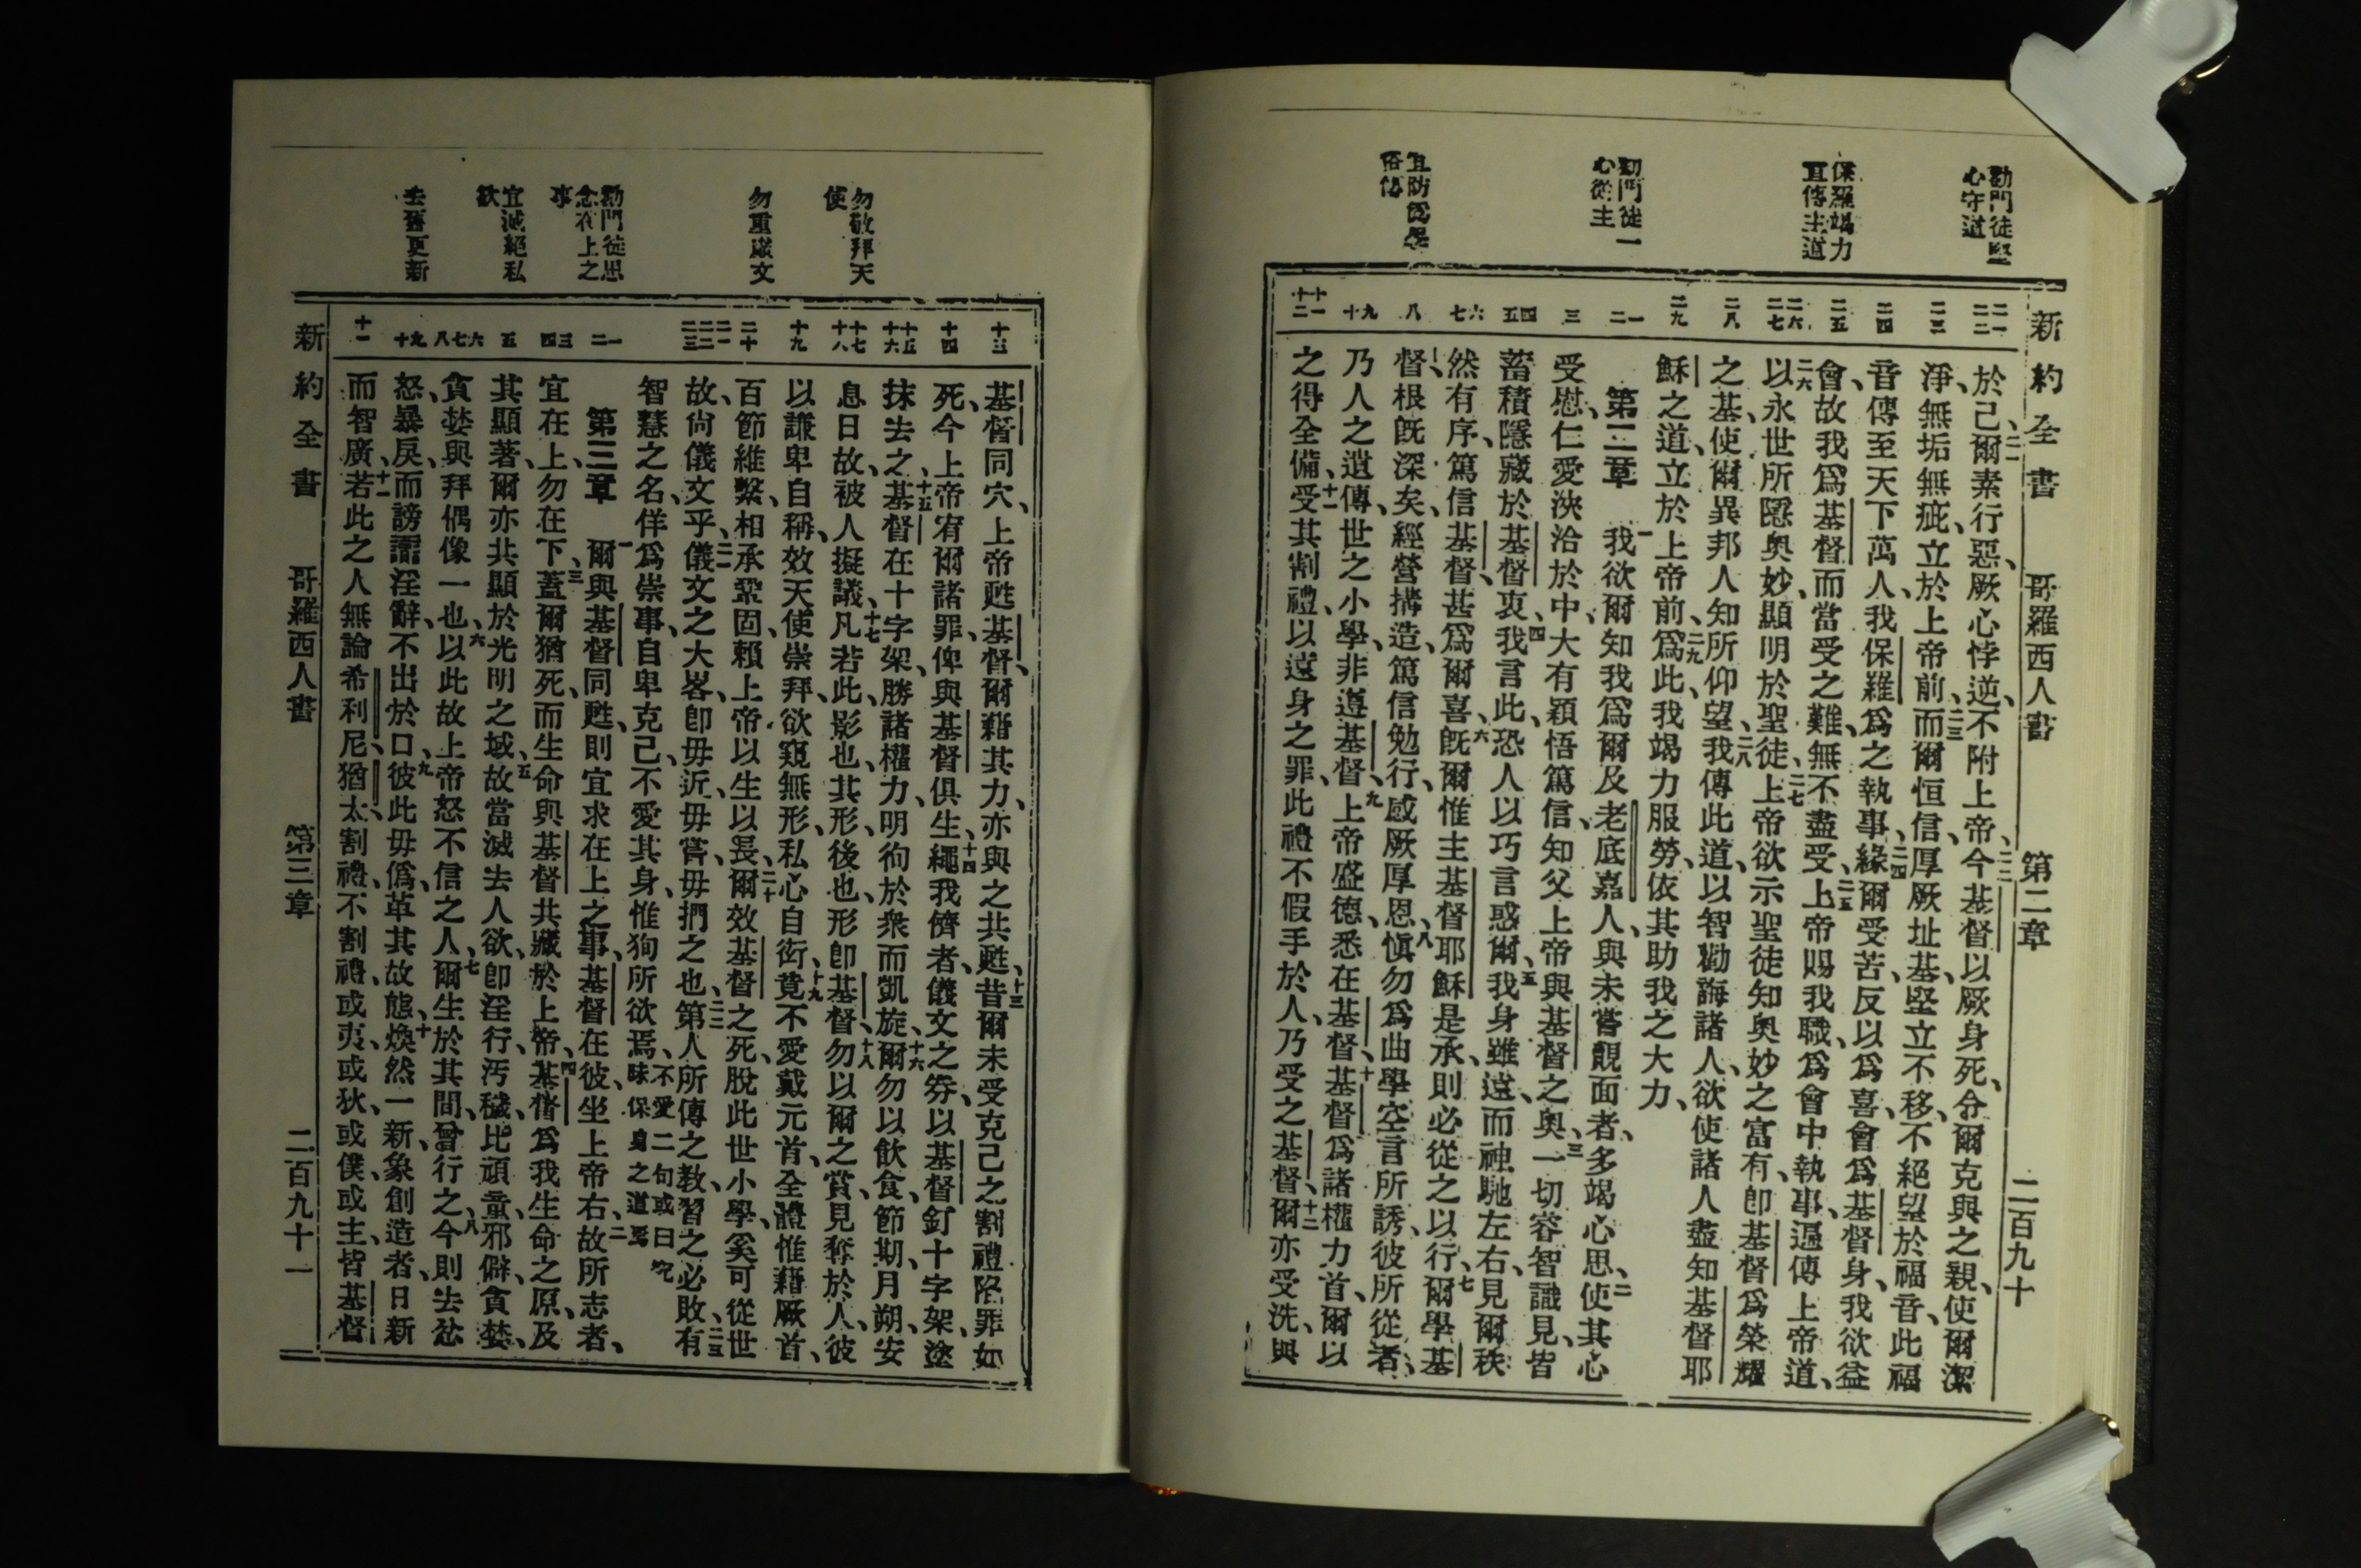 新約全書 哥羅西人書 第二章 二百九十
勸門徒堅
心守道
保羅竭力
宣傳主道
勸門徒一
心從主
宜防異學
俗傳
二一 二二
二三
二四
二五
二六 二七
二八
二九
一 二
三
四 五
六 七
八
九 十
十一 十二
於己、二一爾素行惡、厥心悖逆、不附上帝、二二今基督以厥身死、令爾克與之親、使爾潔
淨、無垢無疵、立於上帝前、二三而爾恒信、厚厥址基、堅立不移、不絕望於福音、此福
音傳至天下萬人、我保羅爲之執事、二四緣爾受苦、反以爲喜、會爲基督身、我欲益
會、故我爲基督而當受之難、無不盡受、二五上帝賜我職、爲會中執事、遍傳上帝道、
二六以永世所隱奧妙、顯明於聖徒、二七上帝欲示聖徒知奧妙之富有、卽基督爲榮耀
之基、使爾異邦人知所仰望、二八我傳此道、以智勸誨諸人、欲使諸人盡知基督耶
穌之道、立於上帝前、二九爲此、我竭力服勞、依其助我之大力、
第二章 一我欲爾知我爲爾及老底嘉人、與未嘗覿面者、多竭心思、二使其心
受慰、仁愛浹洽於中、大有穎悟篤信、知父上帝與基督之奧、三一切睿智識見、皆
蓄積隱藏於基督衷、四我言此、恐人以巧言惑爾、五我身雖遠、而神馳左右、見爾秩
然有序、篤信基督、甚爲爾喜、六旣爾惟主基督耶穌是承、則必從之以行、七爾學基
督、根旣深矣、經營搆造、篤信勉行、感厥厚恩、八愼勿爲曲學空言所誘、彼所從者、
乃人之遺傳、世之小學、非遵基督、九上帝盛德、悉在基督、十基督爲諸權力首、爾以
之得全備、十一受其割禮、以遠身之罪、此禮不假手於人、乃受之基督、十二爾亦受洗、與
勿敬拜天
使
勿重儀文
勸門徒思
念在上之
事
宜滅絕私
欲
去舊更新
十三
十四
十五 十六
十七 十八
十九
二十
二一 二二 二三
一 二
三 四
五
六 七 八
九 十
十一
基督同穴、上帝甦基督、爾藉其力、亦與之共甦、十三昔爾未受克己之割禮、陷罪如
死、今上帝宥爾諸罪、俾與基督俱生、十四繩我儕者、儀文之券、以基督釘十字架、塗
抹去之、十五基督在十字架、勝諸權力、明徇於衆而凱旋、十六爾勿以飲食、節期、月朔、安
息日故、被人擬議、十七凡若此、影也、其形、後也、形卽基督、十八勿以爾之賞、見奪於人、彼
以謙卑自稱、效天使崇拜、欲窺無形、私心自衒、十九竟不愛戴元首、全體惟藉厥首、
百節維繫、相承鞏固、賴上帝以生以長、二十爾效基督之死、脫此世小學、奚可從世
故、尙儀文乎、二一儀文之大畧、卽毋近、毋嘗、毋捫之也、二二第人所傳之敎、習之必敗、二三有
智慧之名、佯爲崇事、自卑克己、不愛其身、惟狥所欲焉、不愛二句或曰究昧保身之道焉
第三章 一爾與基督同甦、則宜求在上之事、基督在彼、坐上帝右、二故所志者、
宜在上、勿在下、三蓋爾猶死、而生命與基督共藏於上帝、四基督爲我生命之原、及
其顯著、爾亦共顯於光明之域、五故當滅去人欲、卽淫行、汚穢、比頑童、邪僻、貪婪、
貪婪與拜偶像一也、六以此故、上帝怒不信之人、七爾生於其間、曾行之、八今則去忿
怒、暴戾、而謗讟淫辭、不出於口、九彼此毋僞、革其故態、十煥然一新、象創造者、日新
而智廣、十一若此之人、無論希利尼、猶太、割禮、不割禮、或夷、或狄、或僕、或主、皆基督
新約全書 哥羅西人書 第三章 二百九十一